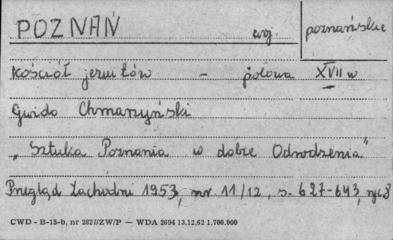 POZNAŃ woj. poznańskie
Kościół jezuitów - połowa XVII w
Guido Chmarzyński
"Sztuka Poznania w dobie Odrodzenia"
Przegląd Zachodni 1953, nr 11/12, s. 627-643, ryc 8
CWD - B-15-b, nr 2827/ZW/P — WDA 2694 13.12.62 1.700.000